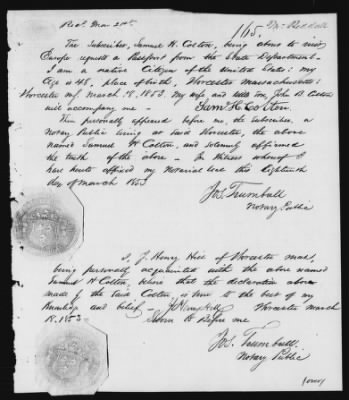 Recd. Mar 21st
165.
Mr Reddall
The Subscriber, Samuel H. Colton, being about to visit
Europe requests a Passport from the State Department.
I am a native Citizen of the United States: my
Age is 48, place of birth, Worcester Massachusetts:
Worcester Ms. March 18, 1853. My wife, and little son, John B. Colton
will accompany me -
Sam H Colton.
Then personally appeared before me, the subscriber, a
Notary Public living at said Worcester, the above
named Samuel H. Colton, and solemnly affirmed
the truth of the above - In Witness whereof I
have hereto affixed my Notarial Seal this Eighteenth
day of March 1853
Jos. Trumbull
Notary Public
I, J. Henry Hill of Worcester Mass,
being personally acquainted with the above named
Samuel H. Colton, swear that the declaration above
made by the said Colton, is true to the best of my
Knowledge and belief - J Henry Hill Worcester March
18. 1853 - Sworn to Before me
Jos. Trumbull.
Notary Public
(over)